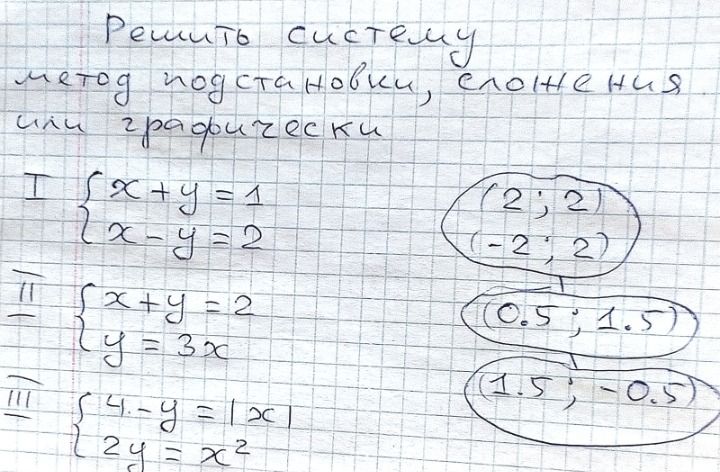 Решить систему
метод подстановки, сложения
или графически
I { x + y = 1
x - y = 2
(2; 2)
(-2; 2)
II { x + y = 2
y = 3x
(0.5; 1.5)
III { 4 - y = |x|
2y = x²
(1.5; -0.5)